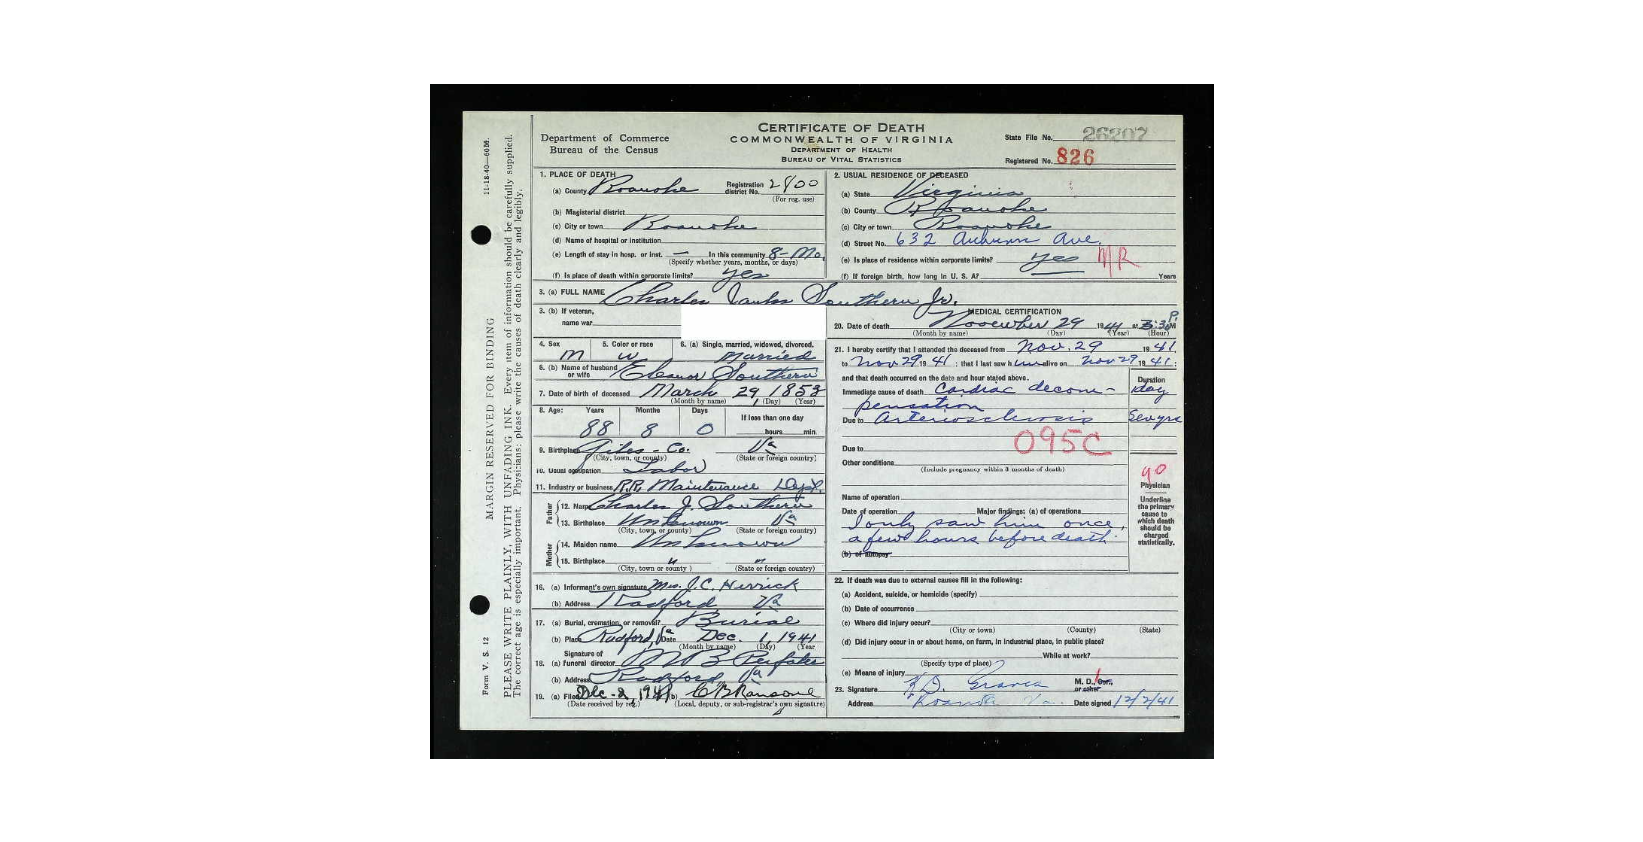 CERTIFICATE OF DEATH
COMMONWEALTH OF VIRGINIA
DEPARTMENT OF HEALTH
BUREAU OF VITAL STATISTICS
Department of Commerce
Bureau of the Census
State File No. 26207
Registered No. 826
11-18-40—60M.
MARGIN RESERVED FOR BINDING
PLEASE WRITE PLAINLY, WITH UNFADING INK. Every item of information should be carefully supplied.
The correct age is especially important. Physicians: please write the causes of death clearly and legibly.
Form V. S. 12
1. PLACE OF DEATH
(a) County Roanoke Registration district No. 2800
(For reg. use)
(b) Magisterial district
(c) City or town Roanoke
(d) Name of hospital or institution
(e) Length of stay in hosp. or inst. — In this community 8-Mo.
(Specify whether years, months, or days)
(f) Is place of death within corporate limits? yes
2. USUAL RESIDENCE OF DECEASED
(a) State Virginia
(b) County Roanoke
(c) City or town Roanoke
(d) Street No. 632 Auburn Ave.
(e) Is place of residence within corporate limits? yes MR
(f) If foreign birth, how long in U. S. A? Years
3. (a) FULL NAME Charles Southern Jr.
3. (b) If veteran,
name war
4. Sex M
5. Color or race W
6. (a) Single, married, widowed, divorced. Married
6. (b) Name of husband or wife Eleanor Southern
7. Date of birth of deceased March 29, 1853
(Month by name) (Day) (Year)
8. Age: Years Months Days If less than one day
88 8 0 hours min.
9. Birthplace Giles - Co. Va
(City, town, or county) (State or foreign country)
10. Usual occupation Labor
11. Industry or business R.R. Maintenance Dept.
Father
12. Name Charles J. Southern
13. Birthplace Unknown Va
(City, town, or county) (State or foreign country)
Mother
14. Maiden name Unknown
15. Birthplace " "
(City, town or county) (State or foreign country)
16. (a) Informent's own signature Mrs. J.C. Herrick
(b) Address Radford Va
17. (a) Burial, cremation, or removal? Burial
(b) Place Radford, Va Date Dec. 1, 1941
(Month by name) (Day) (Year
Signature of
18. (a) funeral director
(b) Address Radford, Va
19. (a) Filed Dec-2, 1941 (b) C B Ransone
(Date received by reg.) (Local, deputy, or sub-registrar's own signature)
MEDICAL CERTIFICATION
20. Date of death November 29 1941 at 3:30 P M
(Month by name) (Day) (Year) (Hour)
21. I hereby certify that I attended the deceased from Nov. 29 1941
to Nov 29 1941 ; that I last saw him alive on Nov 29 1941 ;
and that death occurred on the date and hour stated above.
Duration
Immediate cause of death Cardiac decom- day
pensation
Due to Arteriosclerosis Sev yrs
095C
Due to
Other conditions
(Include pregnancy within 3 months of death)
90
Physician
Underline the primary cause to which death should be charged statistically.
Name of operation
Date of operation Major findings: (a) of operations
I only saw him once,
a few hours before death.
(b) of autopsy
22. If death was due to external causes fill in the following:
(a) Accident, suicide, or homicide (specify)
(b) Date of occurrence
(c) Where did injury occur?
(City or town) (County) (State)
(d) Did injury occur in or about home, on farm, in industrial place, in public place?
While at work?
(Specify type of place)
(e) Means of injury
23. Signature Graves M. D.
or other
Address Roanoke Va. Date signed 12/2/41